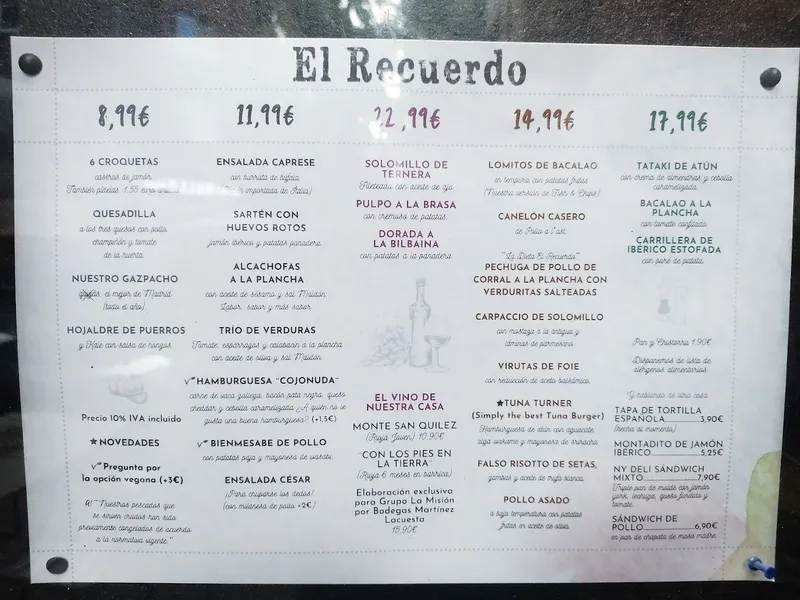 El Recuerdo
8,99€
6 CROQUETAS
caseras de jamón.
También pídelas. 1,55 euro unidad
QUESADILLA
a los tres quesos con pollo,
champiñón y tomate
de la huerta.
NUESTRO GAZPACHO
el mejor de Madrid
(todo el año).
HOJALDRE DE PUERROS
y Kale con salsa de hongos.
Precio 10% IVA incluido
★NOVEDADES
Pregunta por
la opción vegana (+3€)
"Nuestros pescados que
se sirven crudos han sido
previamente congelados de acuerdo
a la normativa vigente."
11,99€
ENSALADA CAPRESE
con burrata de búfala.
importada de Italia)
SARTÉN CON
HUEVOS ROTOS
jamón ibérico y patatas panadera.
ALCACHOFAS
A LA PLANCHA
con aceite de sésamo y sal Maldon.
Labor, sabor y más sabor.
TRÍO DE VERDURAS
Tomate, espárragos y calabacín a la plancha
con aceite de oliva y sal Maldon.
HAMBURGUESA "COJONUDA"
carne de vaca gallega, bacón pata negra, queso
cheddar y cebolla caramelizada ¿A quién no se
gusta una buena hamburguesa? (+1,5€)
BIENMESABE DE POLLO
con patatas paja y mayonesa de wasabi.
ENSALADA CÉSAR
¡Para chuparse los dedos!
(con milanesa de pollo +2€)
22,99€
SOLOMILLO DE
TERNERA
fileteado con aceite de ajo.
PULPO A LA BRASA
con cremoso de patatas.
DORADA A
LA BILBAINA
con patatas a la panadera.
EL VINO DE
NUESTRA CASA
MONTE SAN QUILEZ
(Rioja Joven) 10,90€
"CON LOS PIES EN
LA TIERRA"
(Rioja 6 meses en barrica)
Elaboración exclusiva
para Grupo La Misión
por Bodegas Martínez
Lacuesta
15,90€
14,99€
LOMITOS DE BACALAO
en tempura con patatas fritas
(Nuestra versión de Fish & Chips)
CANELÓN CASERO
de Pollo a l'ast.
"La Dieta El Recuerdo"
PECHUGA DE POLLO DE
CORRAL A LA PLANCHA CON
VERDURITAS SALTEADAS
CARPACCIO DE SOLOMILLO
con mostaza a la antigua y
láminas de parmesano.
VIRUTAS DE FOIE
con reducción de aceto balsámico.
★TUNA TURNER
(Simply the best Tuna Burger)
Hamburguesa de atún con aguacate,
alga wakame y mayonesa de sriracha.
FALSO RISOTTO DE SETAS,
gambas y aceite de trufa blanca.
POLLO ASADO
a baja temperatura con patatas
fritas en aceite de oliva.
17,99€
TATAKI DE ATÚN
con crema de almendras y cebolla
caramelizada.
BACALAO A LA
PLANCHA
con tomate confitado.
CARRILLERA DE
IBÉRICO ESTOFADA
con puré de patata.
Pan y Chistorra 1,90€
Disponemos de lista de
alérgenos alimentarios.
Y hablando de otra cosa...
TAPA DE TORTILLA
ESPAÑOLA 3,90€
(hecha al momento)
MONTADITO DE JAMÓN
IBÉRICO 5,25€
NY DELI SÁNDWICH
MIXTO 7,90€
Triple pan de molde con jamón
york, lechuga, queso fundido y
tomate.
SÁNDWICH DE
POLLO 6,90€
en pan de chapata de masa madre.